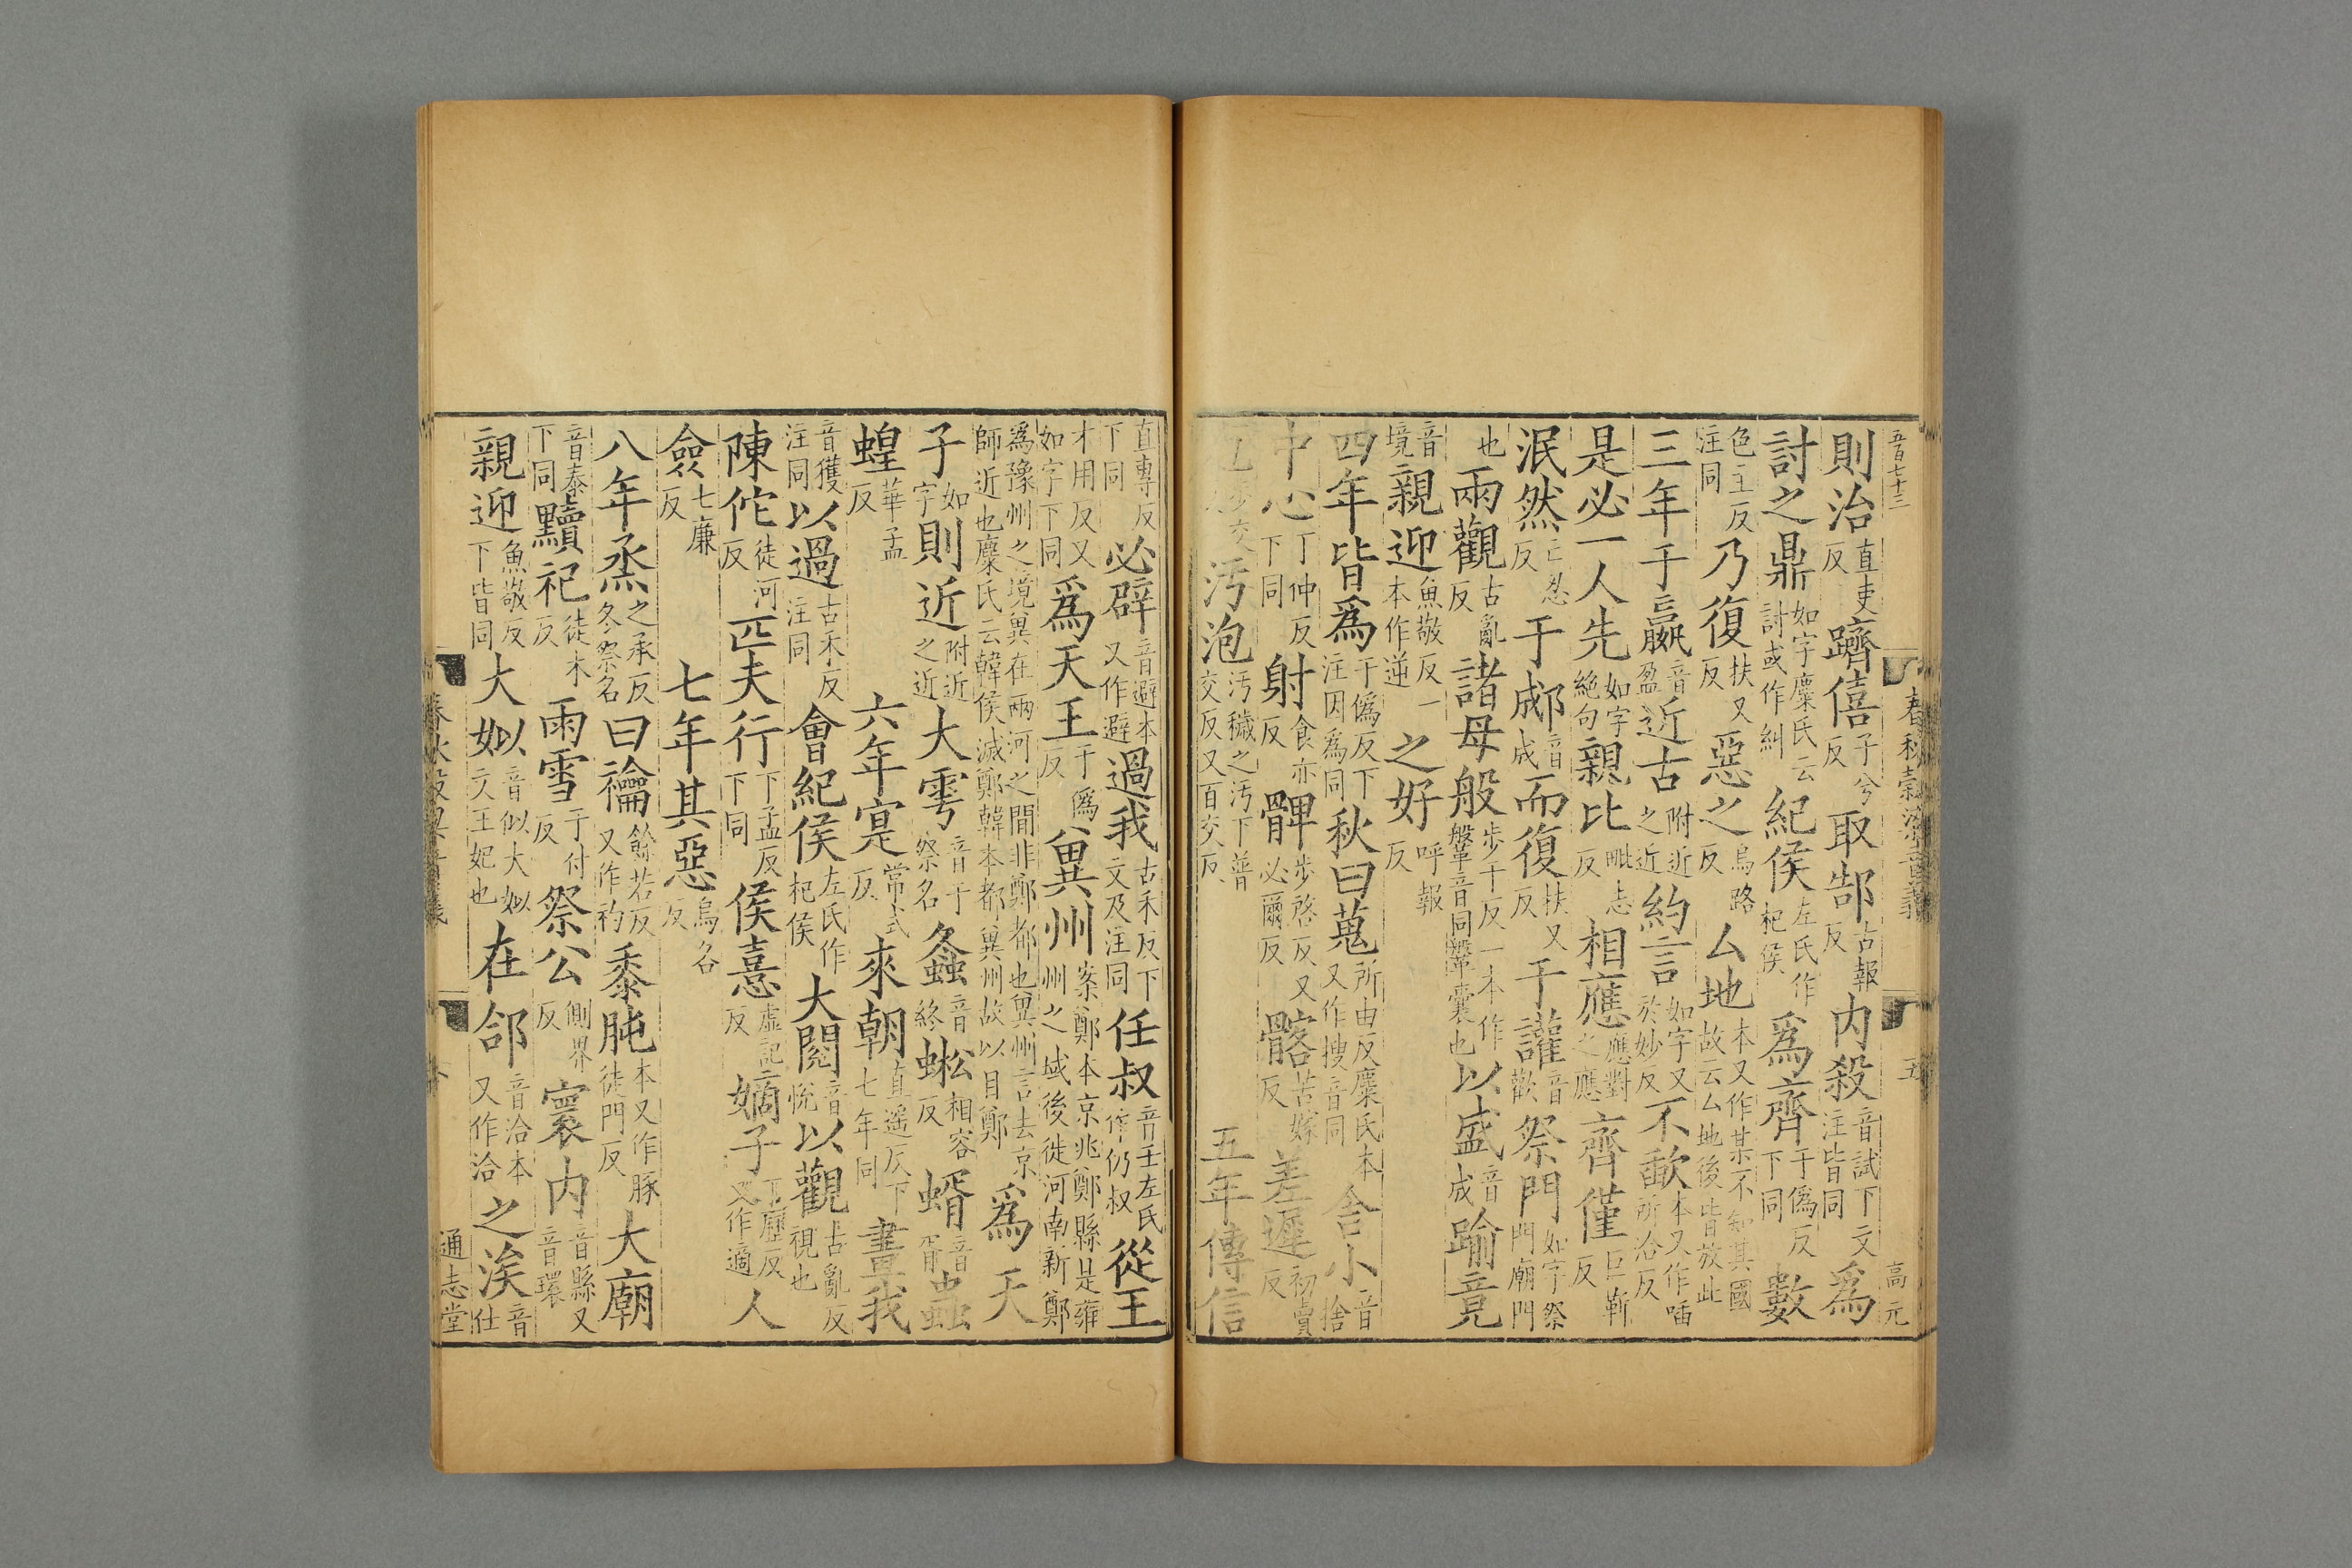 五百七十三
春秋穀梁音義 五 高元
則治直吏反躋僖子兮反取郜古報反內殺音試下文注皆同爲
討之鼎如字麋氏云討或作糾紀侯左氏作杞侯爲齊于僞反下同數
色主反注同乃復扶又反惡之烏路反厶地本又作某不知其國故云厶地後皆放此
三年于嬴音盈近古附近之近約言如字又於妙反不歃本又作喢所洽反
是必一人先如字絕句親比毗志反相應應對之應齊僅巨靳反
泯然亡忍反于郕音成而復扶又反于讙音歡祭門如字祭門廟門
也兩觀古亂反諸母般步干反一本作鞶音同鞶囊也以盛音成踰竟
音境親迎魚敬反一本作逆之好呼報反
四年皆爲于僞反下注因爲同秋曰蒐所由反麋氏本又作搜音同舍小音捨
中心丁仲反下同射食亦反髀步啓反又必爾反髂苦嫁反差遲初賣反
汚泡汚穢之汚下普交反又百交反五年傳信
直專反下同必辟音避本又作避過我古禾反下文及注同任叔音壬左氏作仍叔從王
才用反又如字下同爲天王于僞反兾州案鄭本京兆鄭縣是雍州之域後徙河南新鄭
爲豫州之境兾在兩河之間非鄭都也兾州言去京師近也麋氏云韓侯滅鄭韓本都兾州故以目鄭爲天
子如字則近附近之近大雩音于祭名螽音終蜙相容反蝑音胥蟲
蝗華孟反六年寔常式反來朝直遙反下七年同畫我
音獲注同以過古禾反注同會紀侯左氏作杞侯大閱音悅以觀古亂反視也
陳佗徒河反匹夫行下孟反下同侯憙虛記反嫡子丁歷反又作適人
僉七廉反七年其惡烏各反
八年烝之承反冬祭名曰禴餘若反又作礿黍肫本又作豚徒門反大廟
音泰下同黷祀徒木反雨雪于付反祭公側界反寰內音縣又音環
親迎魚敬反下皆同大姒音似大姒文王妃也在郃音洽本又作洽之涘音仕
通志堂